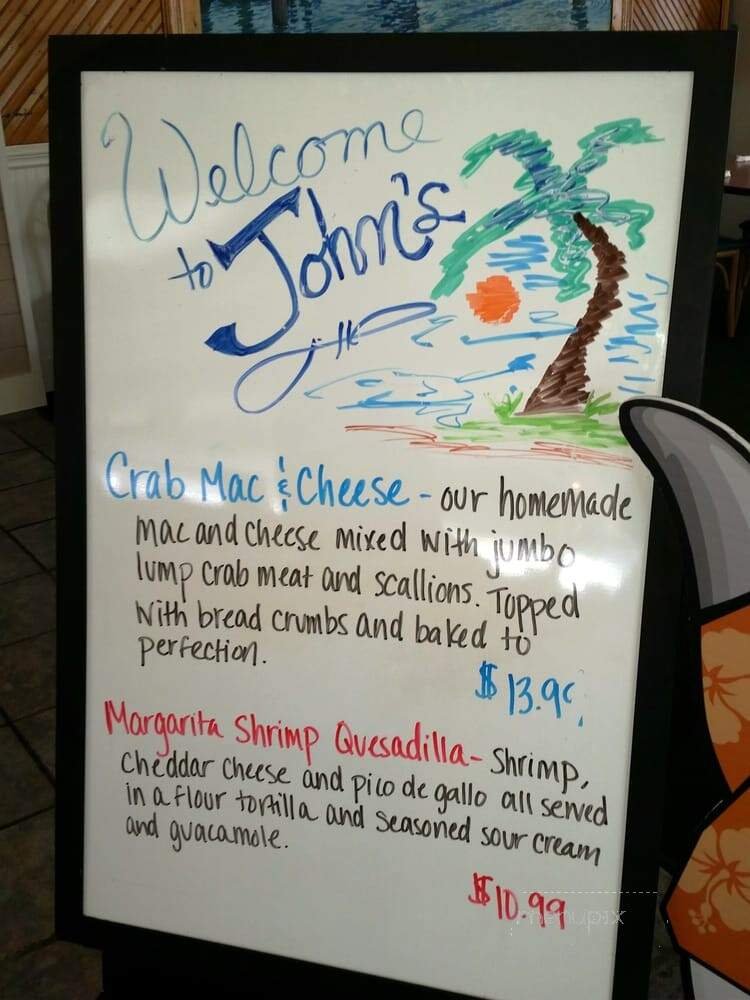 Welcome
to John's
Crab Mac & Cheese - our homemade
mac and cheese mixed with jumbo
lump crab meat and scallions. Topped
with bread crumbs and baked to
perfection.
$13.99
Margarita Shrimp Quesadilla - Shrimp,
cheddar cheese and pico de gallo all served
in a flour tortilla and seasoned sour cream
and guacamole.
$10.99
menupix